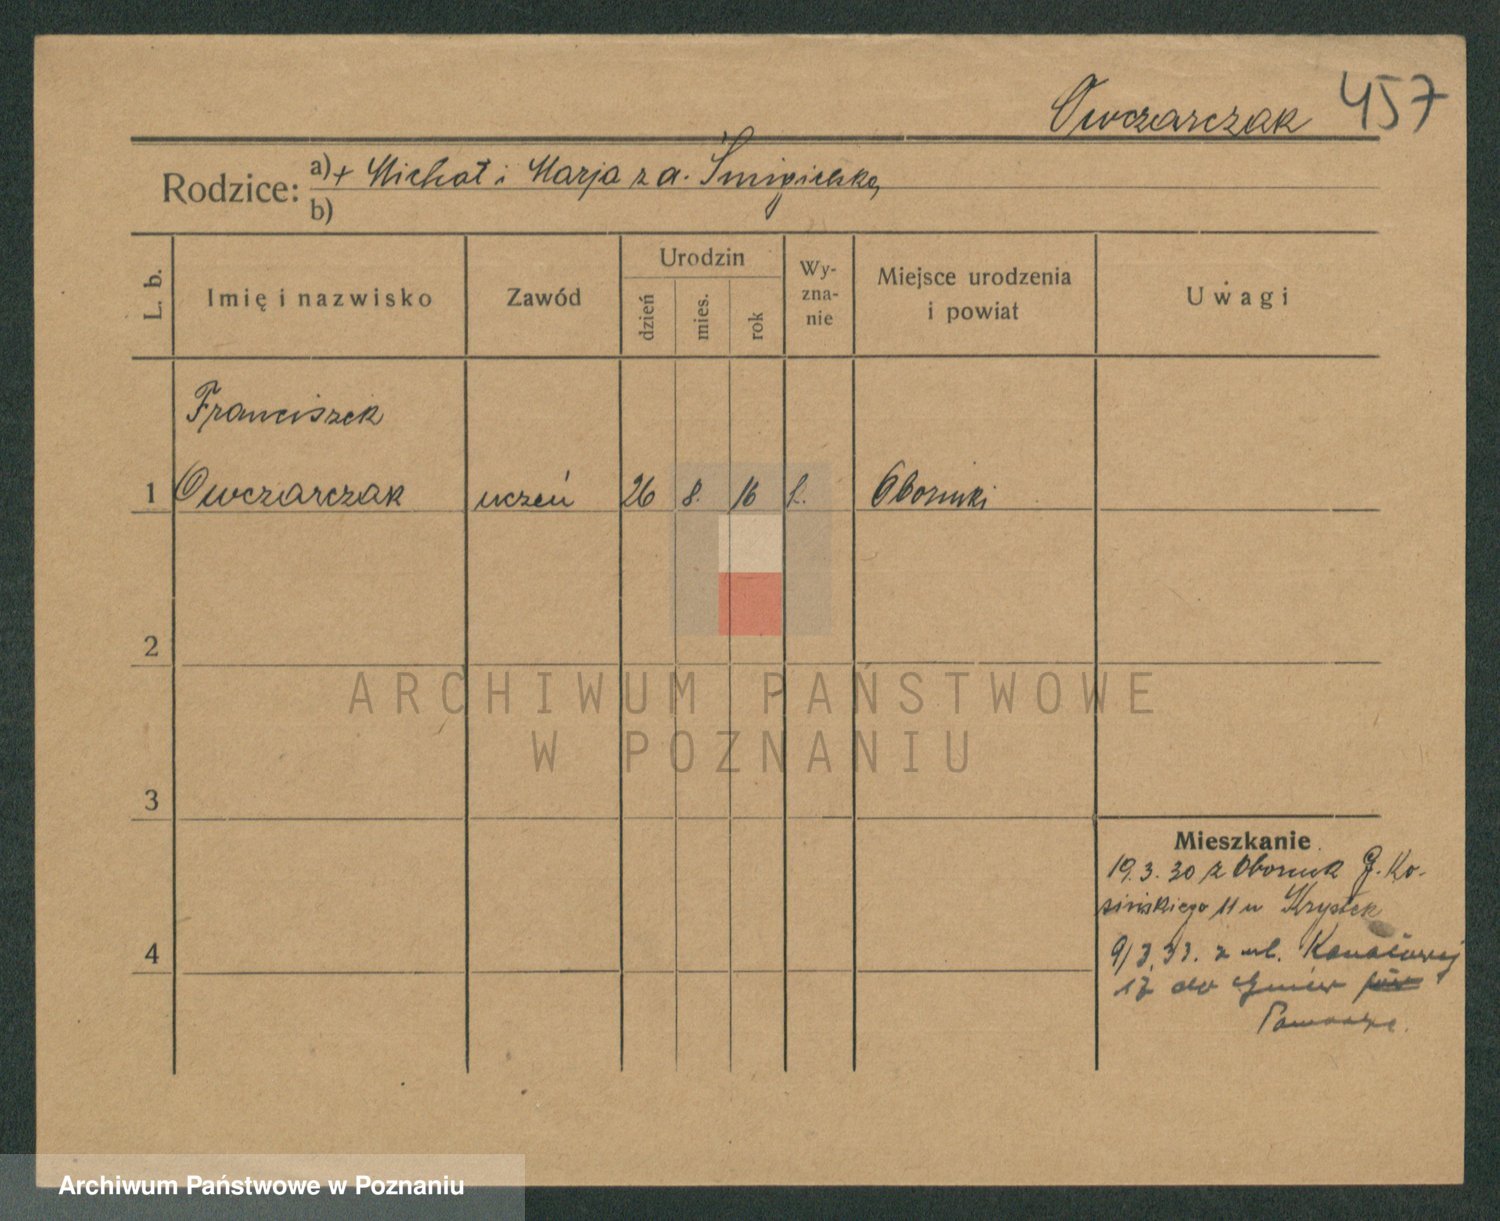 Owczarczak 457
Rodzice: a) + Michał i Marja z d. Śmigielska
b)
L. b.
Imię i nazwisko
Zawód
Urodzin
dzień
mies.
rok
Wy-
zna-
nie
Miejsce urodzenia
i powiat
Uwagi
Franciszek
1 Owczarczak uczeń 26 8. 16 Oborniki
2
ARCHIWUM PAŃSTWOWE
W POZNANIU
3
Mieszkanie
19.3.30 z Obornik G. Ko-
sińskiego 11 u Krystek
4
9/3.33. z ul. Kanałowej
17 do Gniew
Archiwum Państwowe w Poznaniu